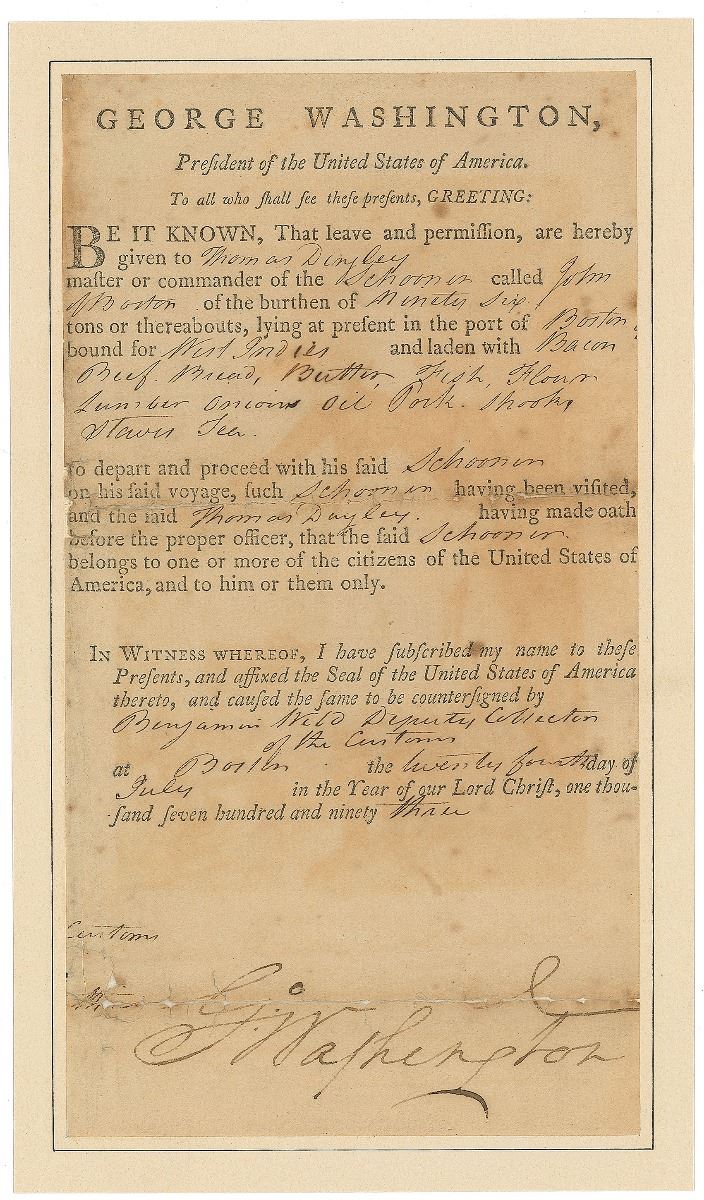 GEORGE WASHINGTON,
Preſident of the United States of America.
To all who ſhall ſee theſe preſents, GREETING:
BE IT KNOWN, That leave and permiſſion, are hereby
given to Thomas Dingley
maſter or commander of the Schooner called John
of Boston of the burthen of Ninety Six
tons or thereabouts, lying at preſent in the port of Boston
bound for West Indies and laden with Bacon
Beef. Bread, Butter, Fish, Flour
Lumber Onions Oil Pork. Shooks
Staves Tea.
to depart and proceed with his ſaid Schooner
on his ſaid voyage, ſuch Schooner having been viſited,
and the ſaid Thomas Dingley. having made oath
before the proper officer, that the ſaid Schooner
belongs to one or more of the citizens of the United States of
America, and to him or them only.
IN WITNESS WHEREOF, I have ſubſcribed my name to theſe
Preſents, and affixed the Seal of the United States of America
thereto, and cauſed the ſame to be counterſigned by
Benjamin Weld Deputy Collector
of the Customs
at Boston the twenty fourth day of
July in the Year of our Lord Chriſt, one thou-
ſand ſeven hundred and ninety three
Customs
G. Washington